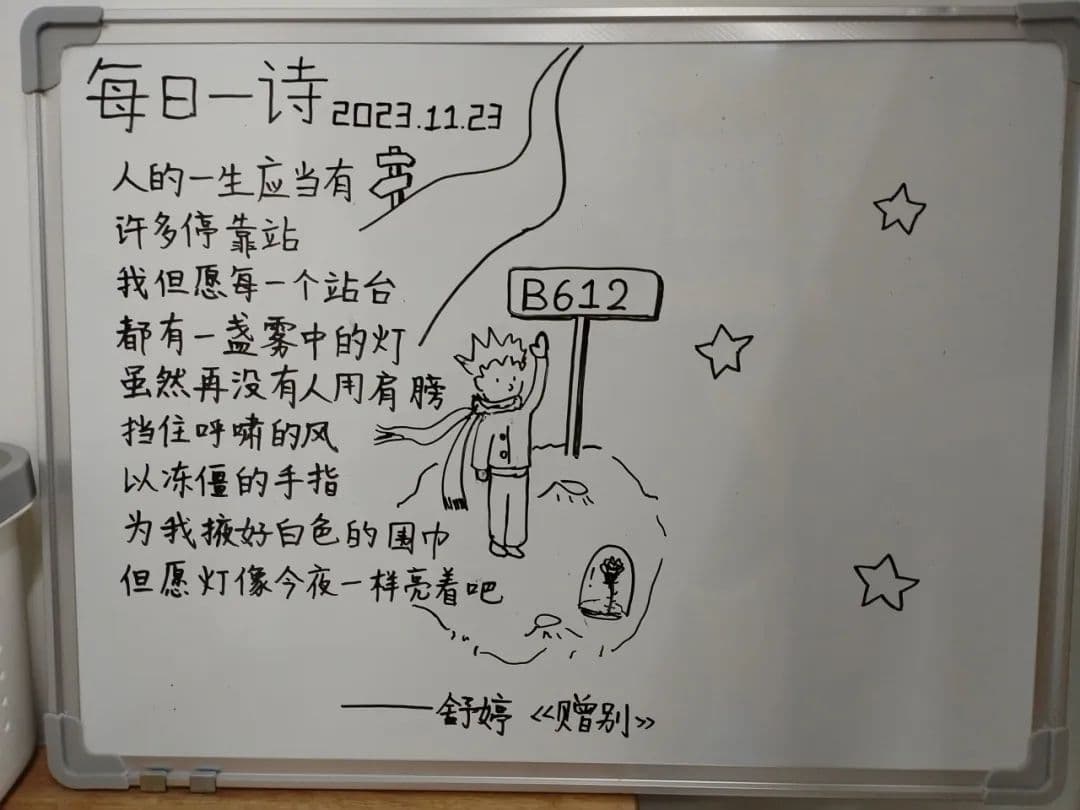 每日一诗 2023.11.23
人的一生应当有
许多停靠站
我但愿每一个站台
都有一盏雾中的灯
虽然再没有人用肩膀
挡住呼啸的风
以冻僵的手指
为我掖好白色的围巾
但愿灯像今夜一样亮着吧
B612
——舒婷《赠别》